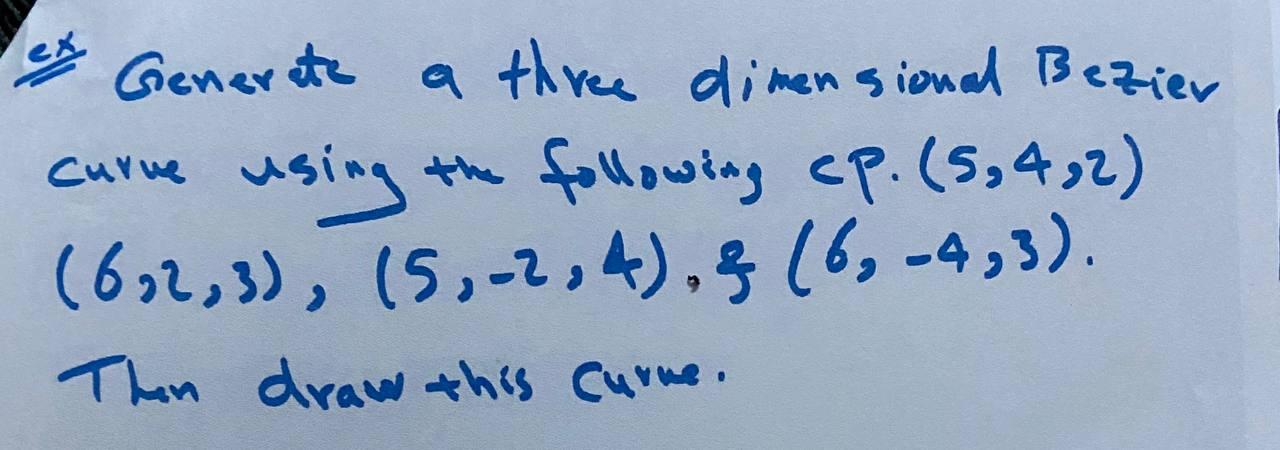 ex Generate a three dimensional Bezier
curve using the following cp. (5,4,2)
(6,2,3), (5,-2,4), & (6,-4,3).
Then draw this curve.